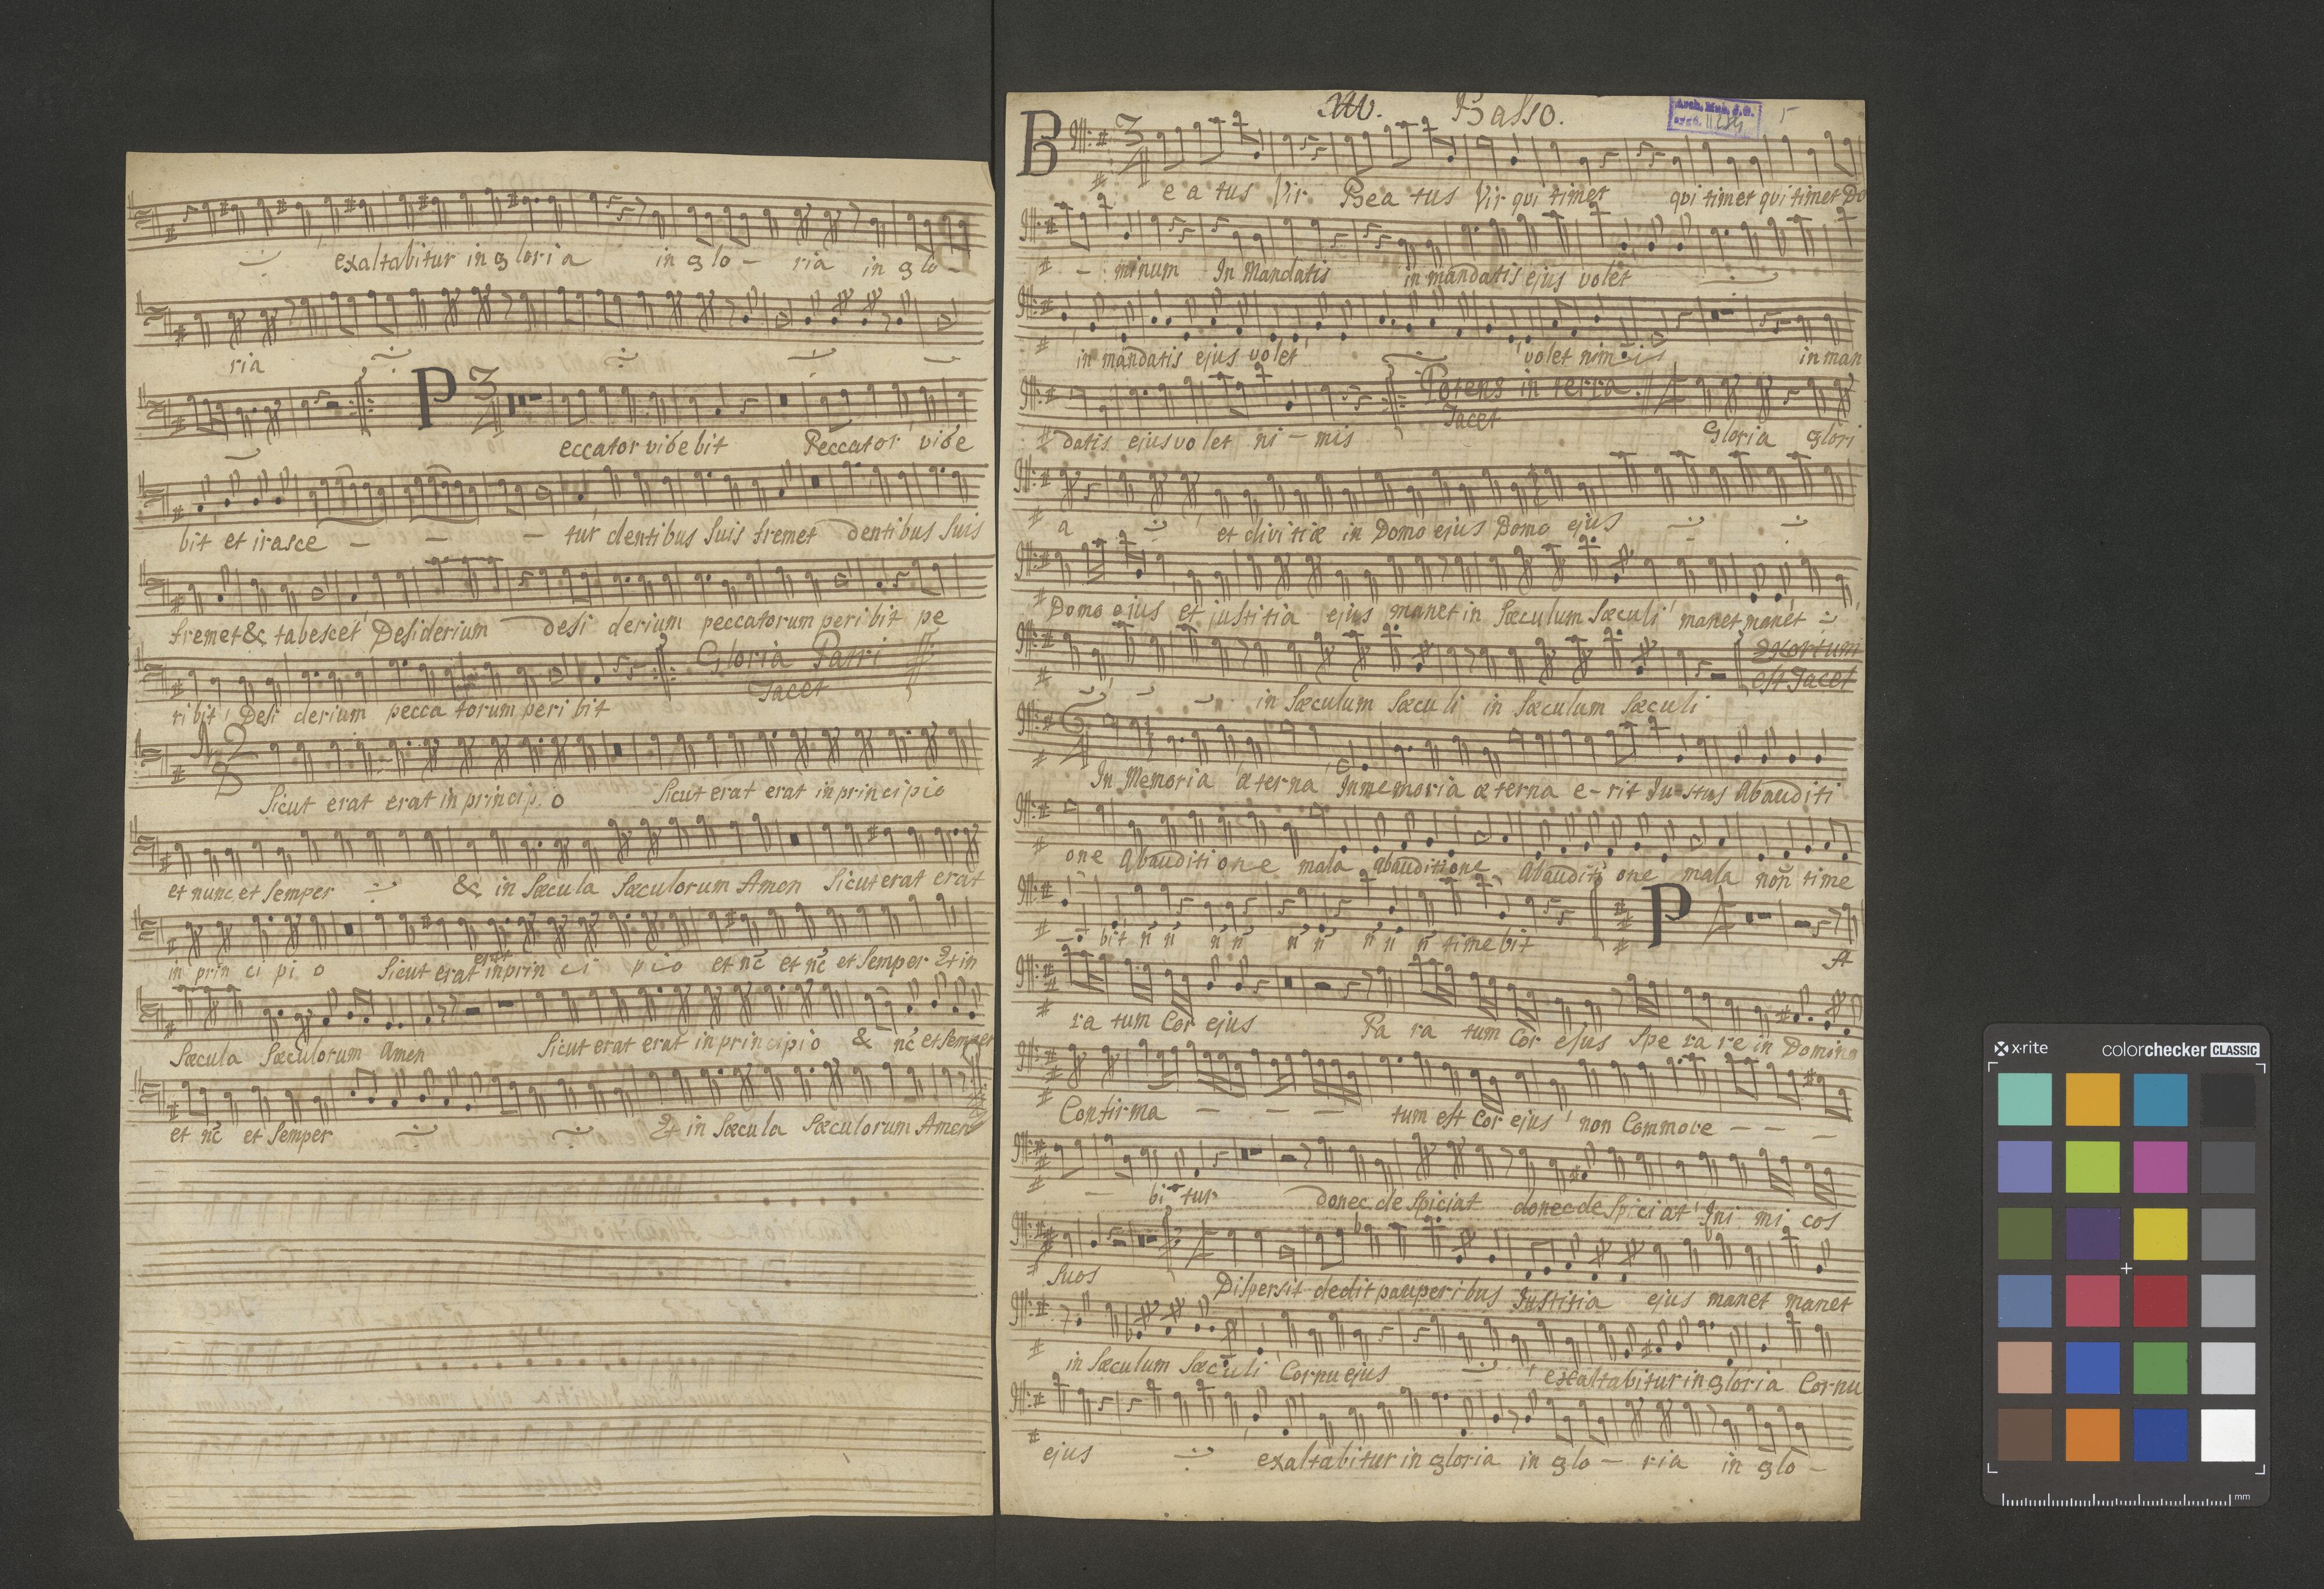 exaltabitur in gloria in glo - ria in glo -
ria
P eccator videbit Peccator vide
bit et irasce - - - tur dentibus suis fremet dentibus suis
fremet & tabescet Desiderium desi derium peccatorum peribit pe
ribit Desi derium pecca torum peri bit Gloria Patri Tacet
Sicut erat erat in princip. o Sicut erat erat in principio
et nunc et semper & in sæcula sæculorum Amen Sicut erat erat
in prin ci pi o Sicut erat erat in prin ci pio et nc̄ et nc̄ et semper Et in
sæcula sæculorum Amen Sicut erat erat in principio & nc̄ et semper
et nc̄ et semper Et in sæcula sæculorum Amen
Basso.
B e a tus Vir Bea tus Vir qui timet qui timet qui timet Do
- minum In Mandatis in mandatis ejus volet
in mandatis ejus volet volet nim - is in man
datis ejus vo let ni - mis Potens in terra. Tacet Gloria glori
a et divitiæ in Domo ejus Domo ejus
Domo ejus et justitia ejus manet in sæculum sæculi manet manet
in sæculum sæcu li in sæculum sæculi Exortum est Tacet
In Memoria æterna In memoria æterna e - rit Ju - stus Ab auditi
one Ab auditi one mala ab auditione Ab auditi one mala non time
- bit n̄ n̄ n̄ n̄ n̄ n̄ n̄ n̄ n̄ timebit P A
ra tum Cor ejus Pa ra tum Cor ejus spe ra re in Domino
Confirma - - - tum est Cor ejus non Commove - - -
- bi - tur donec despiciat donec despiciat Ini mi cos
suos Dispersit dedit pauperibus Justitia ejus manet manet
in sæculum sæculi Cornu ejus exaltabitur in gloria Cornu
ejus exaltabitur in gloria in glo - ria in glo -
x-rite colorchecker CLASSIC
mm